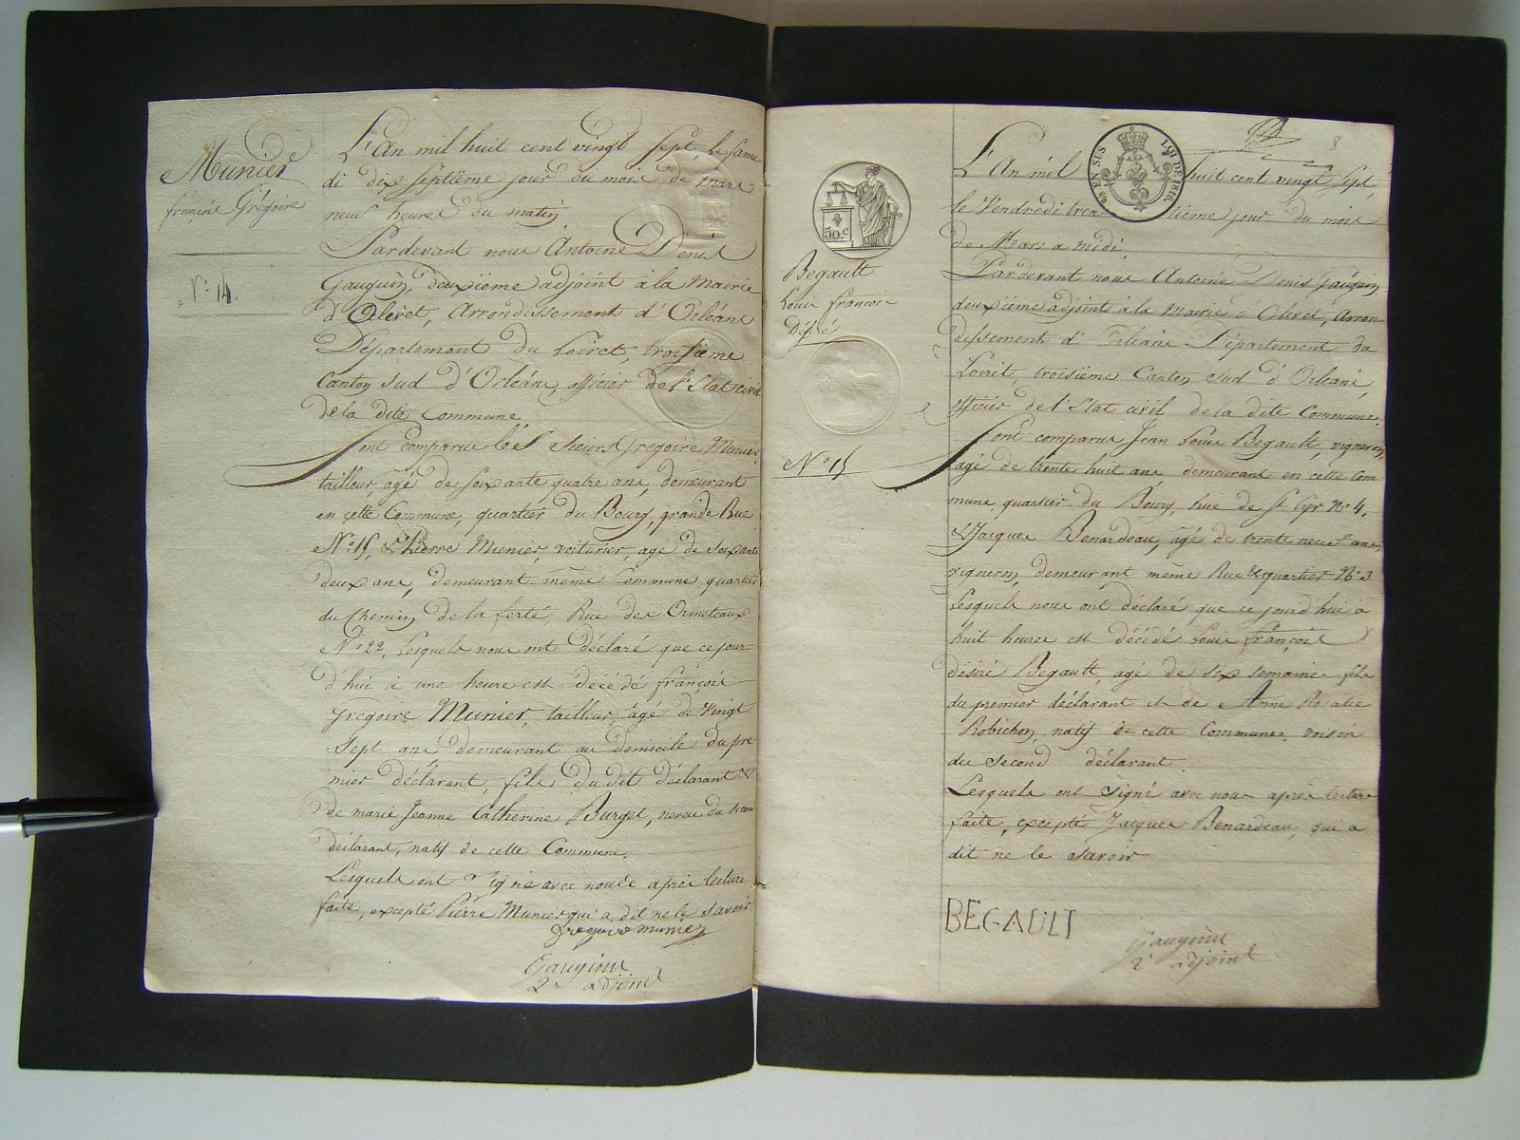 Munier
françois Grégoire
N.° 14.
L'An mil huit cent vingt sept, le same
di dix septième jour du mois de mars
neuf heures du matin
Pardevant nous Antoine Denis
Gauguin, deuxième adjoint à la Mairie
d'Olivet, Arrondissement d'Orléans
Département du Loiret, troisième
Canton sud d'Orléans, officier de l'Etat civil
de la dite Commune,
Sont comparus les Sieurs Grégoire Munier
tailleur, agé de soixante quatre ans, demeurant
en cette Commune, quartier du Bourg, grande Rue
N.° 15, & Pierre Munier, voiturier, agé de soixante
deux ans, demeurant même Commune quartier
du Chemin de la ferté, Rue des Ormeteaux
N.° 22, Lesquels nous ont déclaré que ce jour
d'hui à une heure est décédé françois
gregoire Munier, tailleur, agé de vingt
sept ans demeurant au domicile du pre
mier déclarant, fils du dit déclarant &
de marie Jeanne Catherine Burget, neveu du
déclarant, natif de cette Commune.
Lesquels ont signé avec nous après lecture
faite, excepté Pierre Munier qui a dit ne le savoir
Gregoire munier
Gauguin
2e adjoint
8
EN SUS
LOI DE 1816
50.c
Begault
Louis françois
Désiré
N.° 15
L'An mil huit cent vingt sept,
le Vendredi trentième jour du mois
de Mars a midi,
Pardevant nous Antoine Denis Gauguin
deuxième adjoint à la Mairie d'Olivet, Arron
dissement d'Orléans Département du
Loiret, troisième Canton sud d'Orléans,
officier de l'Etat civil de la dite Commune.
Sont comparus Jean Louis Begault, vigneron,
agé de trente huit ans, demeurant en cette Com
mune, quartier du Bourg, Rue de St Cyr N.° 4.
& Jacques Benardeau, agé de trente neuf ans,
vigneron, demeurant même Rue & quartier N.° 3
Lesquels nous ont déclaré que ce jourd'hui à
huit heures est décédé Louis françois
désiré Begault, agé de six semaines fils
du premier déclarant et de Anne Rosalie
Robichon, natif de cette Commune, voisin
du second déclarant.
Lesquels ont signé avec nous après lecture
faite, excepté Jacques Benardeau, qui a
dit ne le savoir
BEGAULT
Gauguin
2e adjoint